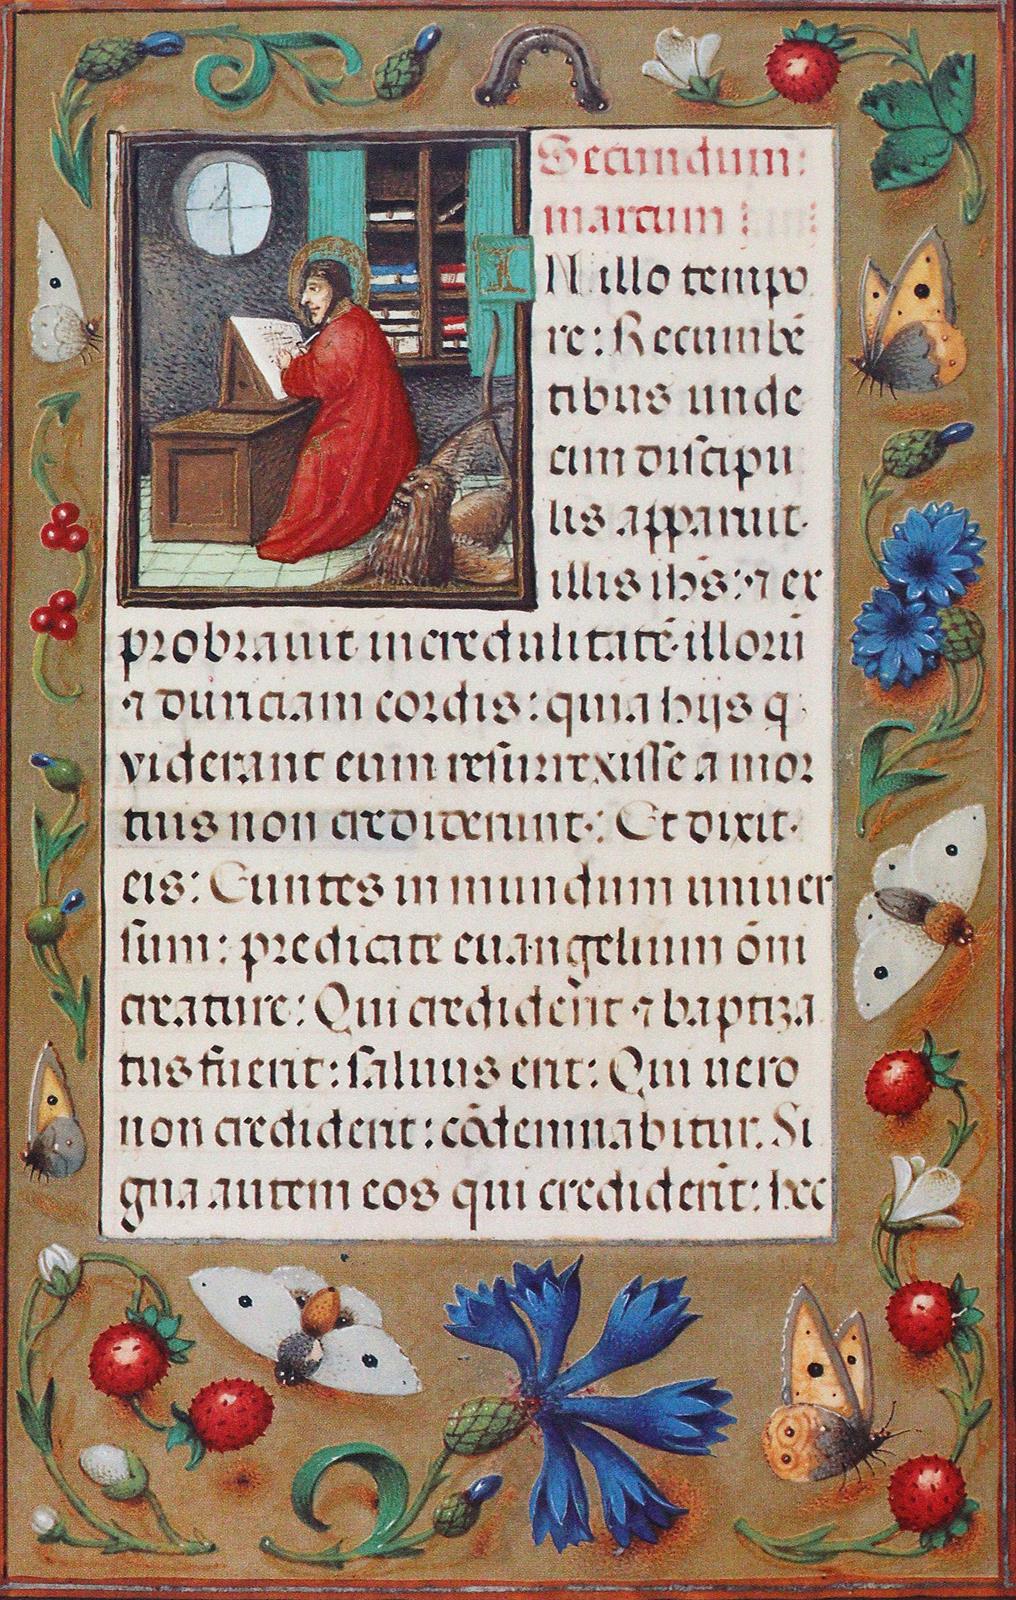 Secundum:
marcum
IN illo tempo
re: Recumbē
tibus unde
cim discipu
lis apparuit·
illis ihs: ⁊ ex
probrauit incredulitatē· illorū
⁊ duriciam cordis: quia hijs q
viderant eum resurrexisse a mor
tuis non crediderunt·: Et dixit·
eis: Euntes in mundum uniuer
sum: predicate euangelium ōni
creature: Qui crediderit ⁊ baptiza
tus fuerit: saluus erit: Qui uero
non crediderit: cōdemnabitur. Si
gna autem eos qui crediderīt: hec